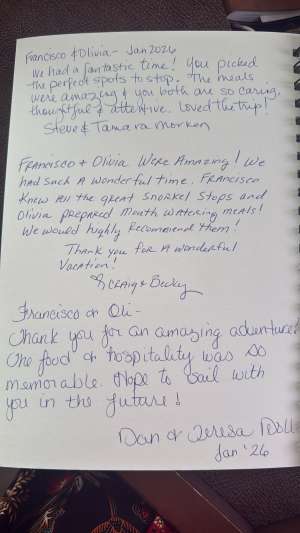 Francisco & Olivia - Jan 2026
We had a fantastic time! You picked
the perfect spots to stop. The meals
were amazing & you both are so caring,
thoughtful & attentive. Loved the trip!
Steve & Tamara Morken
Francisco & Olivia Were Amazing! We
had such a wonderful time. Francisco
knew all the great snorkel stops and
Olivia prepared mouth watering meals!
We would highly recommend them!
Thank you for a wonderful
vacation!
Craig & Becky
Francisco & Oli-
Thank you for an amazing adventure.
The food & hospitality was so
memorable. Hope to sail with
you in the future!
Dan & Teresa Doll
Jan '26